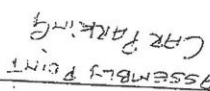 ASSEMBLY POINT
CAR PARKING